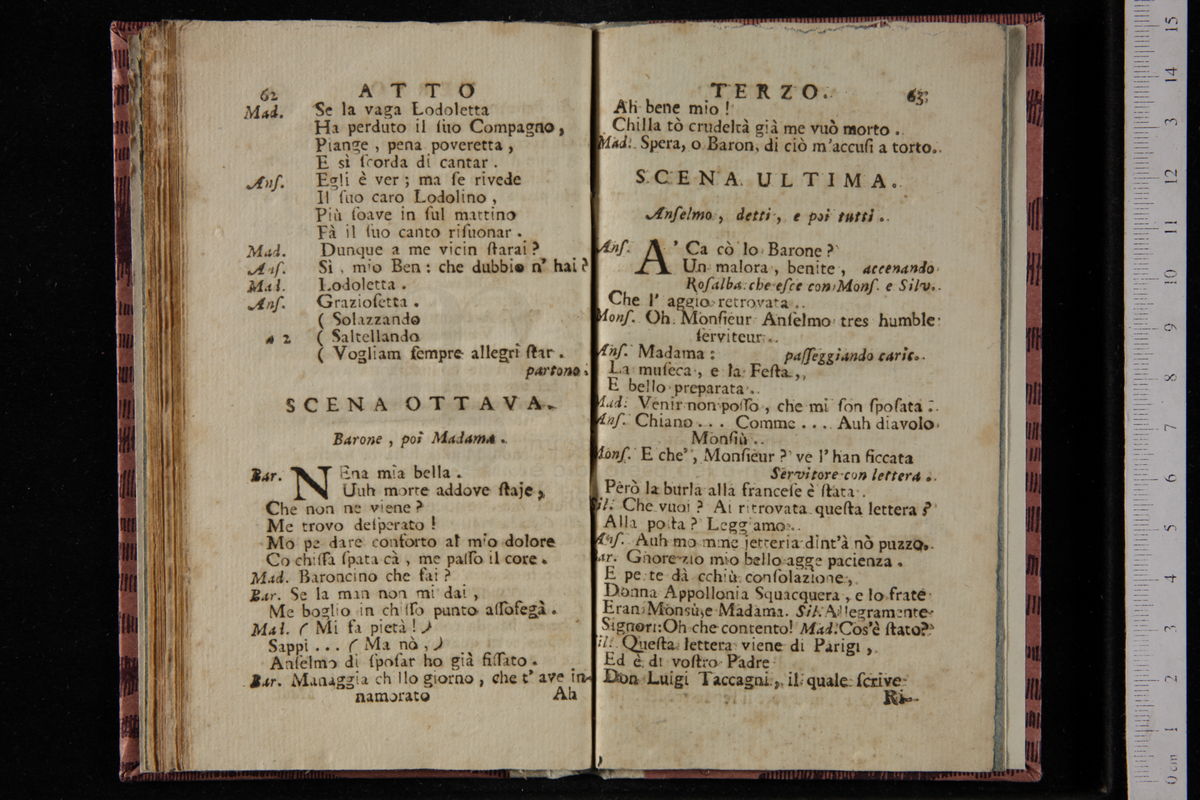 62 ATTO
Mad. Se la vaga Lodoletta
Ha perduto il ſuo Compagno,
Piange, pena poveretta,
E sì ſcorda di cantar.
Anſ. Egli è ver; ma ſe rivede
Il ſuo caro Lodolino,
Più ſoave in ſul mattino
Fà il ſuo canto riſuonar.
Mad. Dunque a me vicin ſtarai?
Anſ. Sì, mio Ben: che dubbio n' hai?
Mad. Lodoletta.
Anſ. Grazioſetta.
( Solazzando
a 2 ( Saltellando
( Vogliam ſempre allegri ſtar.
partono.
SCENA OTTAVA.
Barone, poi Madama.
Bar. NEna mia bella.
Uuh morte addove ſtaje,
Che non ne viene?
Me trovo deſperato!
Mo pe dare conforto al mio dolore
Co chiſſa ſpata cà, me paſſo il core.
Mad. Baroncino che fai?
Bar. Se la man non mi dai,
Me boglio in chiſſo punto aſſoſegà.
Mad. ( Mi fa pietà! )
Sappi... ( Ma nò, )
Anſelmo di ſpoſar ho già fiſſato.
Bar. Managgia ch llo giorno, che t' ave in-
namorato Ah
TERZO. 63
Ah bene mio!
Chilla tò crudeltà già me vuò morto.
Mad. Spera, o Baron, di ciò m'accuſi a torto.
SCENA ULTIMA.
Anſelmo, detti, e poi tutti.
Anſ. A' Ca cò lo Barone?
Un malora, benite, accenando
Roſalba che eſce con Monſ. e Silv.
Che l' aggio retrovata.
Monſ. Oh Monſieur Anſelmo tres humble
ſerviteur.
Anſ. Madama: paſſeggiando caric.
La muſeca, e la Feſta,
E bello preparata.
Mad. Venir non poſſo, che mi ſon ſpoſata.
Anſ. Chiano... Comme.... Auh diavolo
Monſiù.
Monſ. E che', Monſieur? ve l' han ficcata
Servitore con lettera.
Però la burla alla franceſe è ſtata.
Sil. Che vuoi? Ai ritrovata queſta lettera?
Alla poſta? Leggiamo.
Anſ. Auh mo mme jetteria dint'à nò puzzo.
Bar. Gnore zio mio bello agge pacienza.
E pe te dà cchiù conſolazione,
Donna Appollonia Squacquera, e lo frate
Eran Monsù, e Madama. Sil. Allegramente
Signori: Oh che contento! Mad. Cos'è ſtato?
Sil. Queſta lettera viene di Parigi,
Ed è di voſtro Padre
Don Luigi Taccagni, il quale ſcrive
Ri-